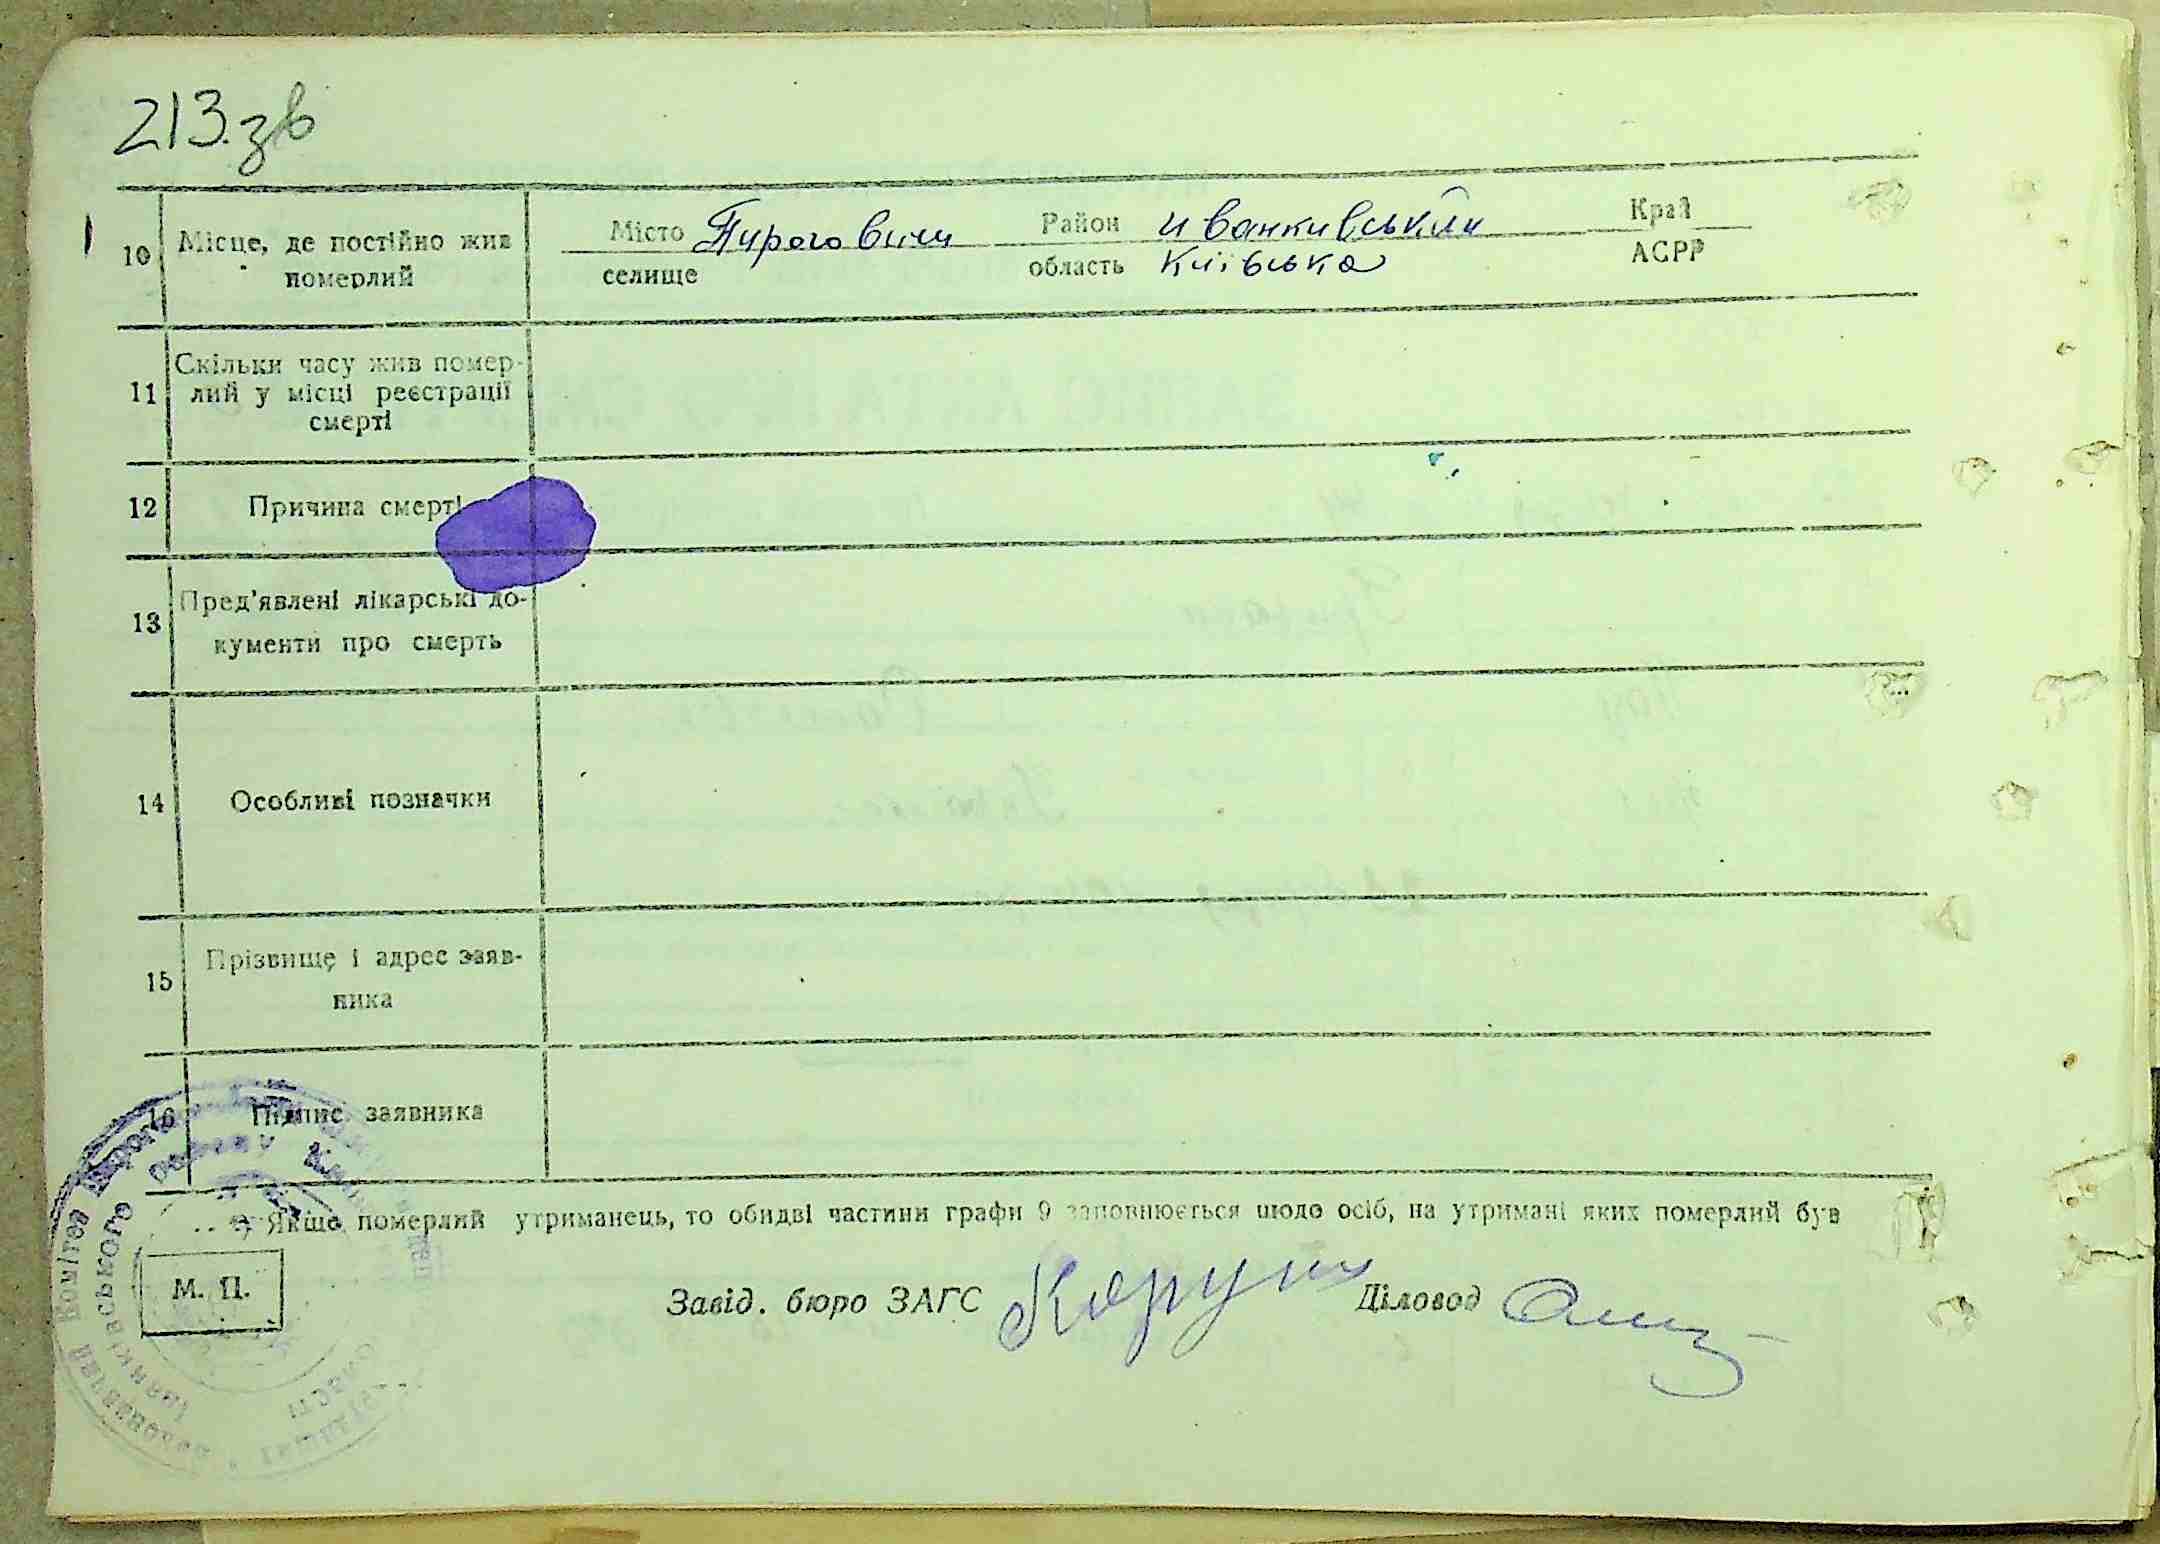 213.зв
10 Місце, де постійно жив померлий
Місто Пироговичи Район иванкивський Край
селище область Київська АСРР
11 Скільки часу жив помер-
лий у місці реєстрації
смерті
12 Причина смерті
13 Пред'явлені лікарські до-
кументи про смерть
14 Особливі позначки
15 Прізвище і адрес заяв-
ника
16 Підпис заявника
*) Якщо померлий утриманець, то обидві частини графи 9 заповнюється щодо осіб, на утримані яких померлий був
М. П.
Завід. бюро ЗАГС Діловод